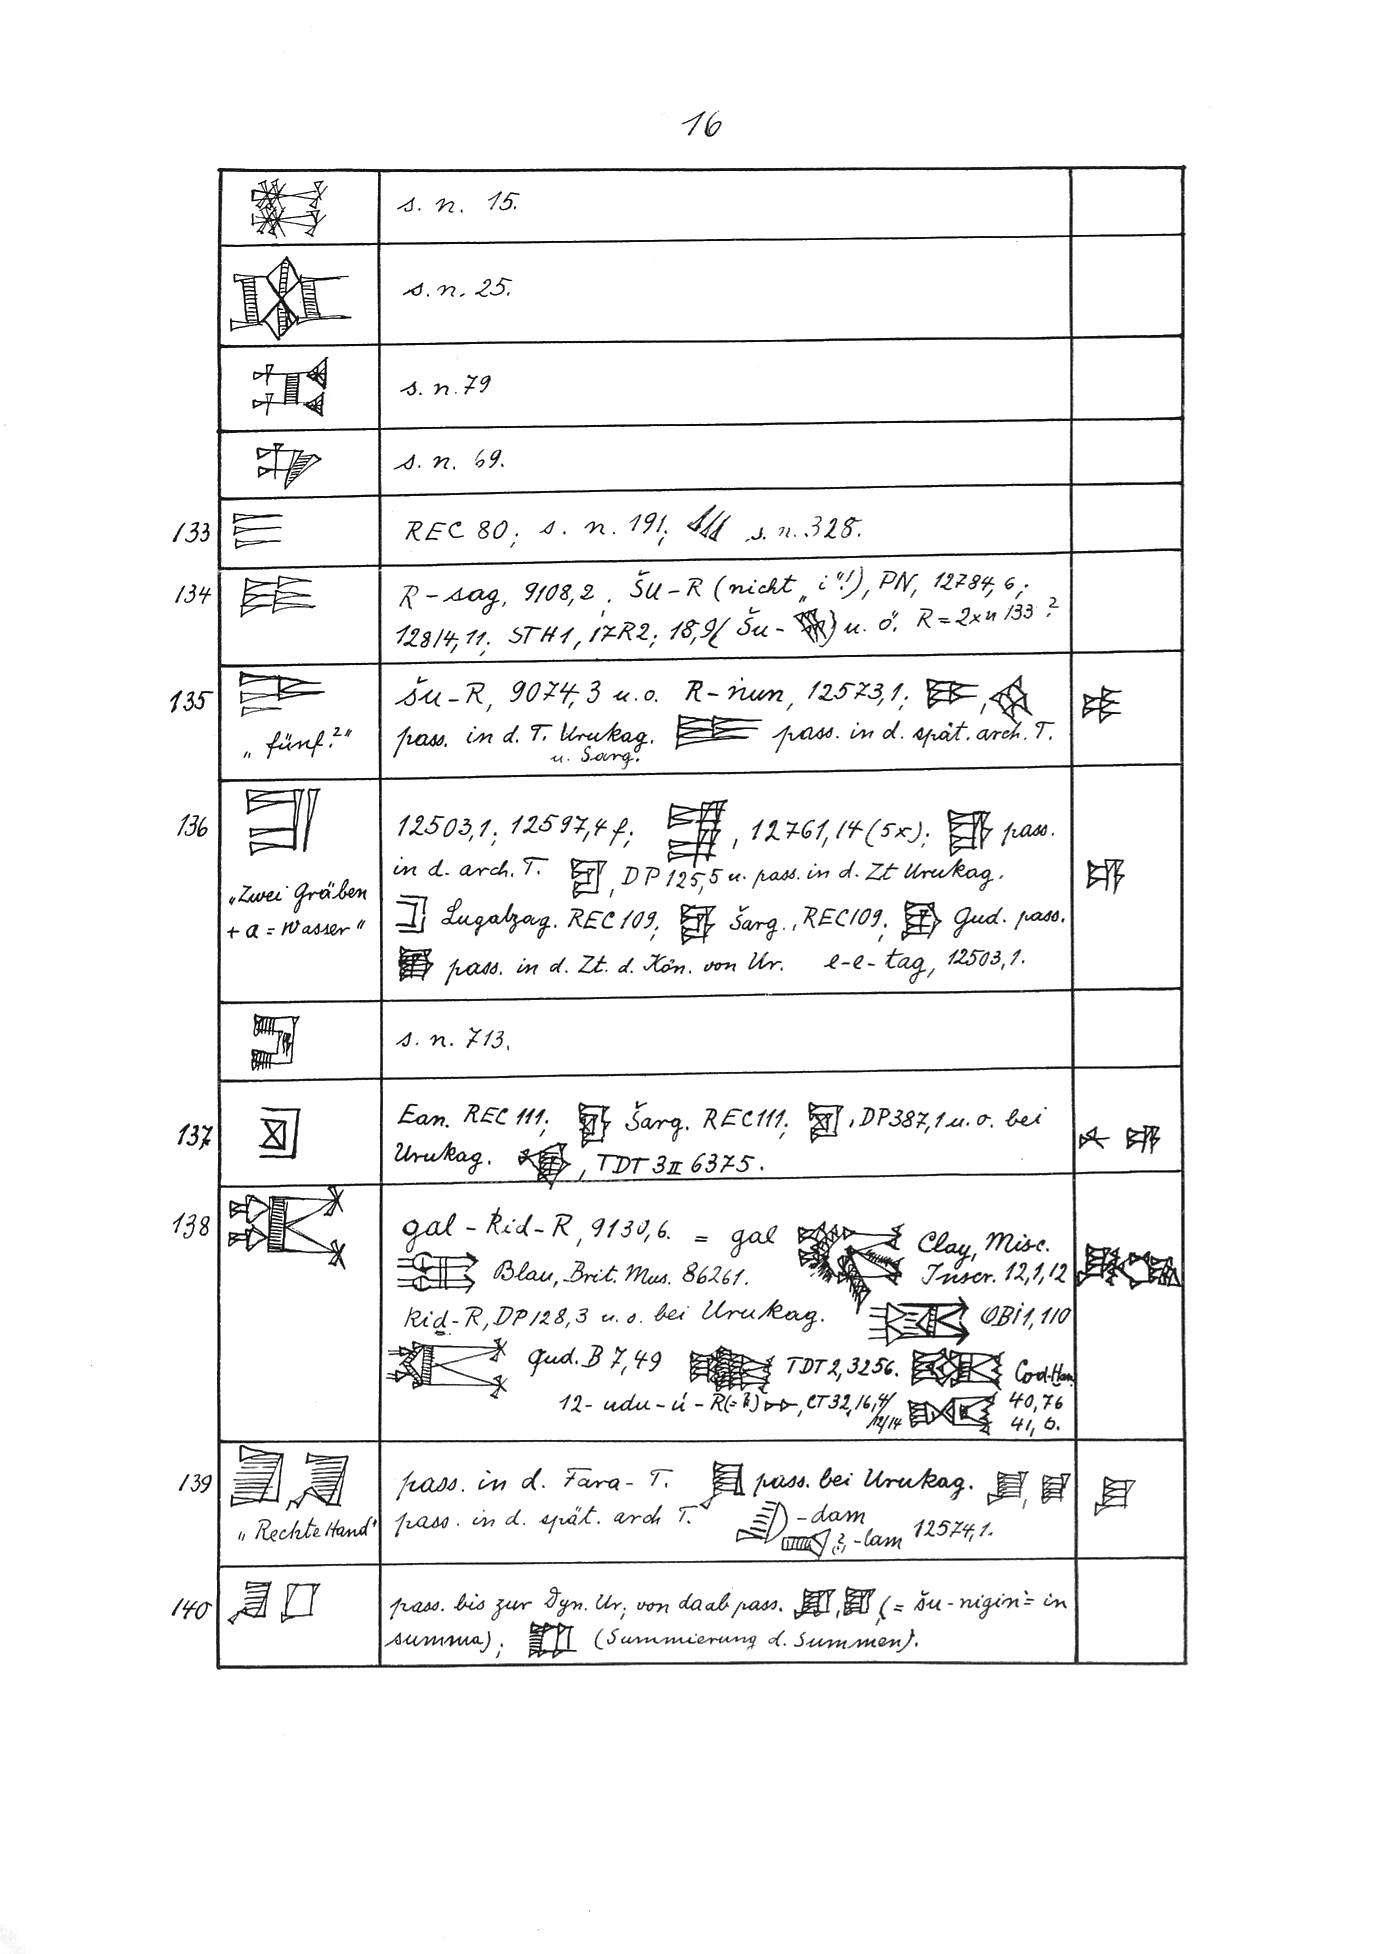 16
s. n. 15.
s. n. 25.
s. n. 79
s. n. 69.
133 REC 80; s. n. 191; s. n. 328.
134 R-sag, 9108,2. ŠU-R (nicht „i"!), PN, 12784,6;
12814,11; STH1, 17R2; 18,9( Šu- ) u. ö. R=2xn 133?
135 šu-R, 9074,3 u. o. R-nun, 12573,1; ,
„fünf?" pass. in d. T. Urukag. pass. in d. spät. arch. T.
u. Šarg.
136 12503,1; 12597,4 f; , 12761,14 (5x); pass.
in d. arch. T. , DP 125,5 u. pass. in d. Zt Urukag.
„Zwei Gräben
+ a = Wasser"
Lugalzag. REC 109; Šarg., REC109; Gud. pass.
pass. in d. Zt. d. Kön. von Ur. e-e-tag, 12503,1.
s. n. 713.
137 Ean. REC 111; Šarg. REC 111; , DP 387,1 u. o. bei
Urukag. , TDT 3 II 6375.
138 gal-kid-R, 9130,6. = gal Clay, Misc.
Blau, Brit. Mus. 86261. Inscr. 12,1,12
kid-R, DP 128,3 u. o. bei Urukag. OBI 1,110
Gud. B 7,49 TDT 2,3256. Cod. Ham.
12-udu-ú-R , CT 32,16,4/ 40,76
12/14 41,6.
139 pass. in d. Fara-T. pass. bei Urukag. ,
„Rechte Hand" pass. in d. spät. arch T. -dam
?, -lam 12574,1.
140 pass. bis zur Dyn. Ur; von da ab pass. , (= šu-nigin = in
summa); (Summierung d. Summen).